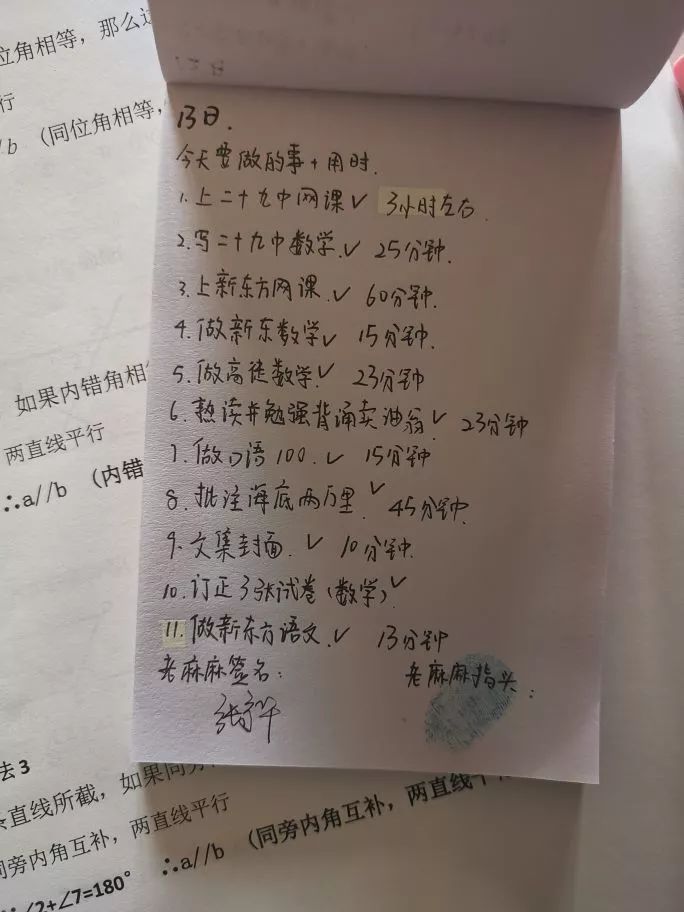 位角相等，那么这
行
//b （同位角相等，
13日.
今天要做的事+用时.
1.上二十九中网课✓ 3小时左右.
2.写二十九中数学.✓ 25分钟.
3.上新东方网课.✓ 60分钟.
4.做新东数学✓ 15分钟.
5.做高徒数学✓ 23分钟
6.熟读并勉强背诵卖油翁✓ 23分钟
7.做口语100.✓ 15分钟
8.批注海底两万里.✓ 45分钟.
9.文集封面.✓ 10分钟.
10.订正3张试卷(数学)✓
11.做新东方语文.✓ 13分钟
老麻麻签名： 老麻麻指头：
如果内错角相
两直线平行
∴a//b （内错
法3
直线所截，如果同旁
同旁内角互补，两直线平行
∠2+∠7=180° ∴a//b （同旁内角互补，两直线平